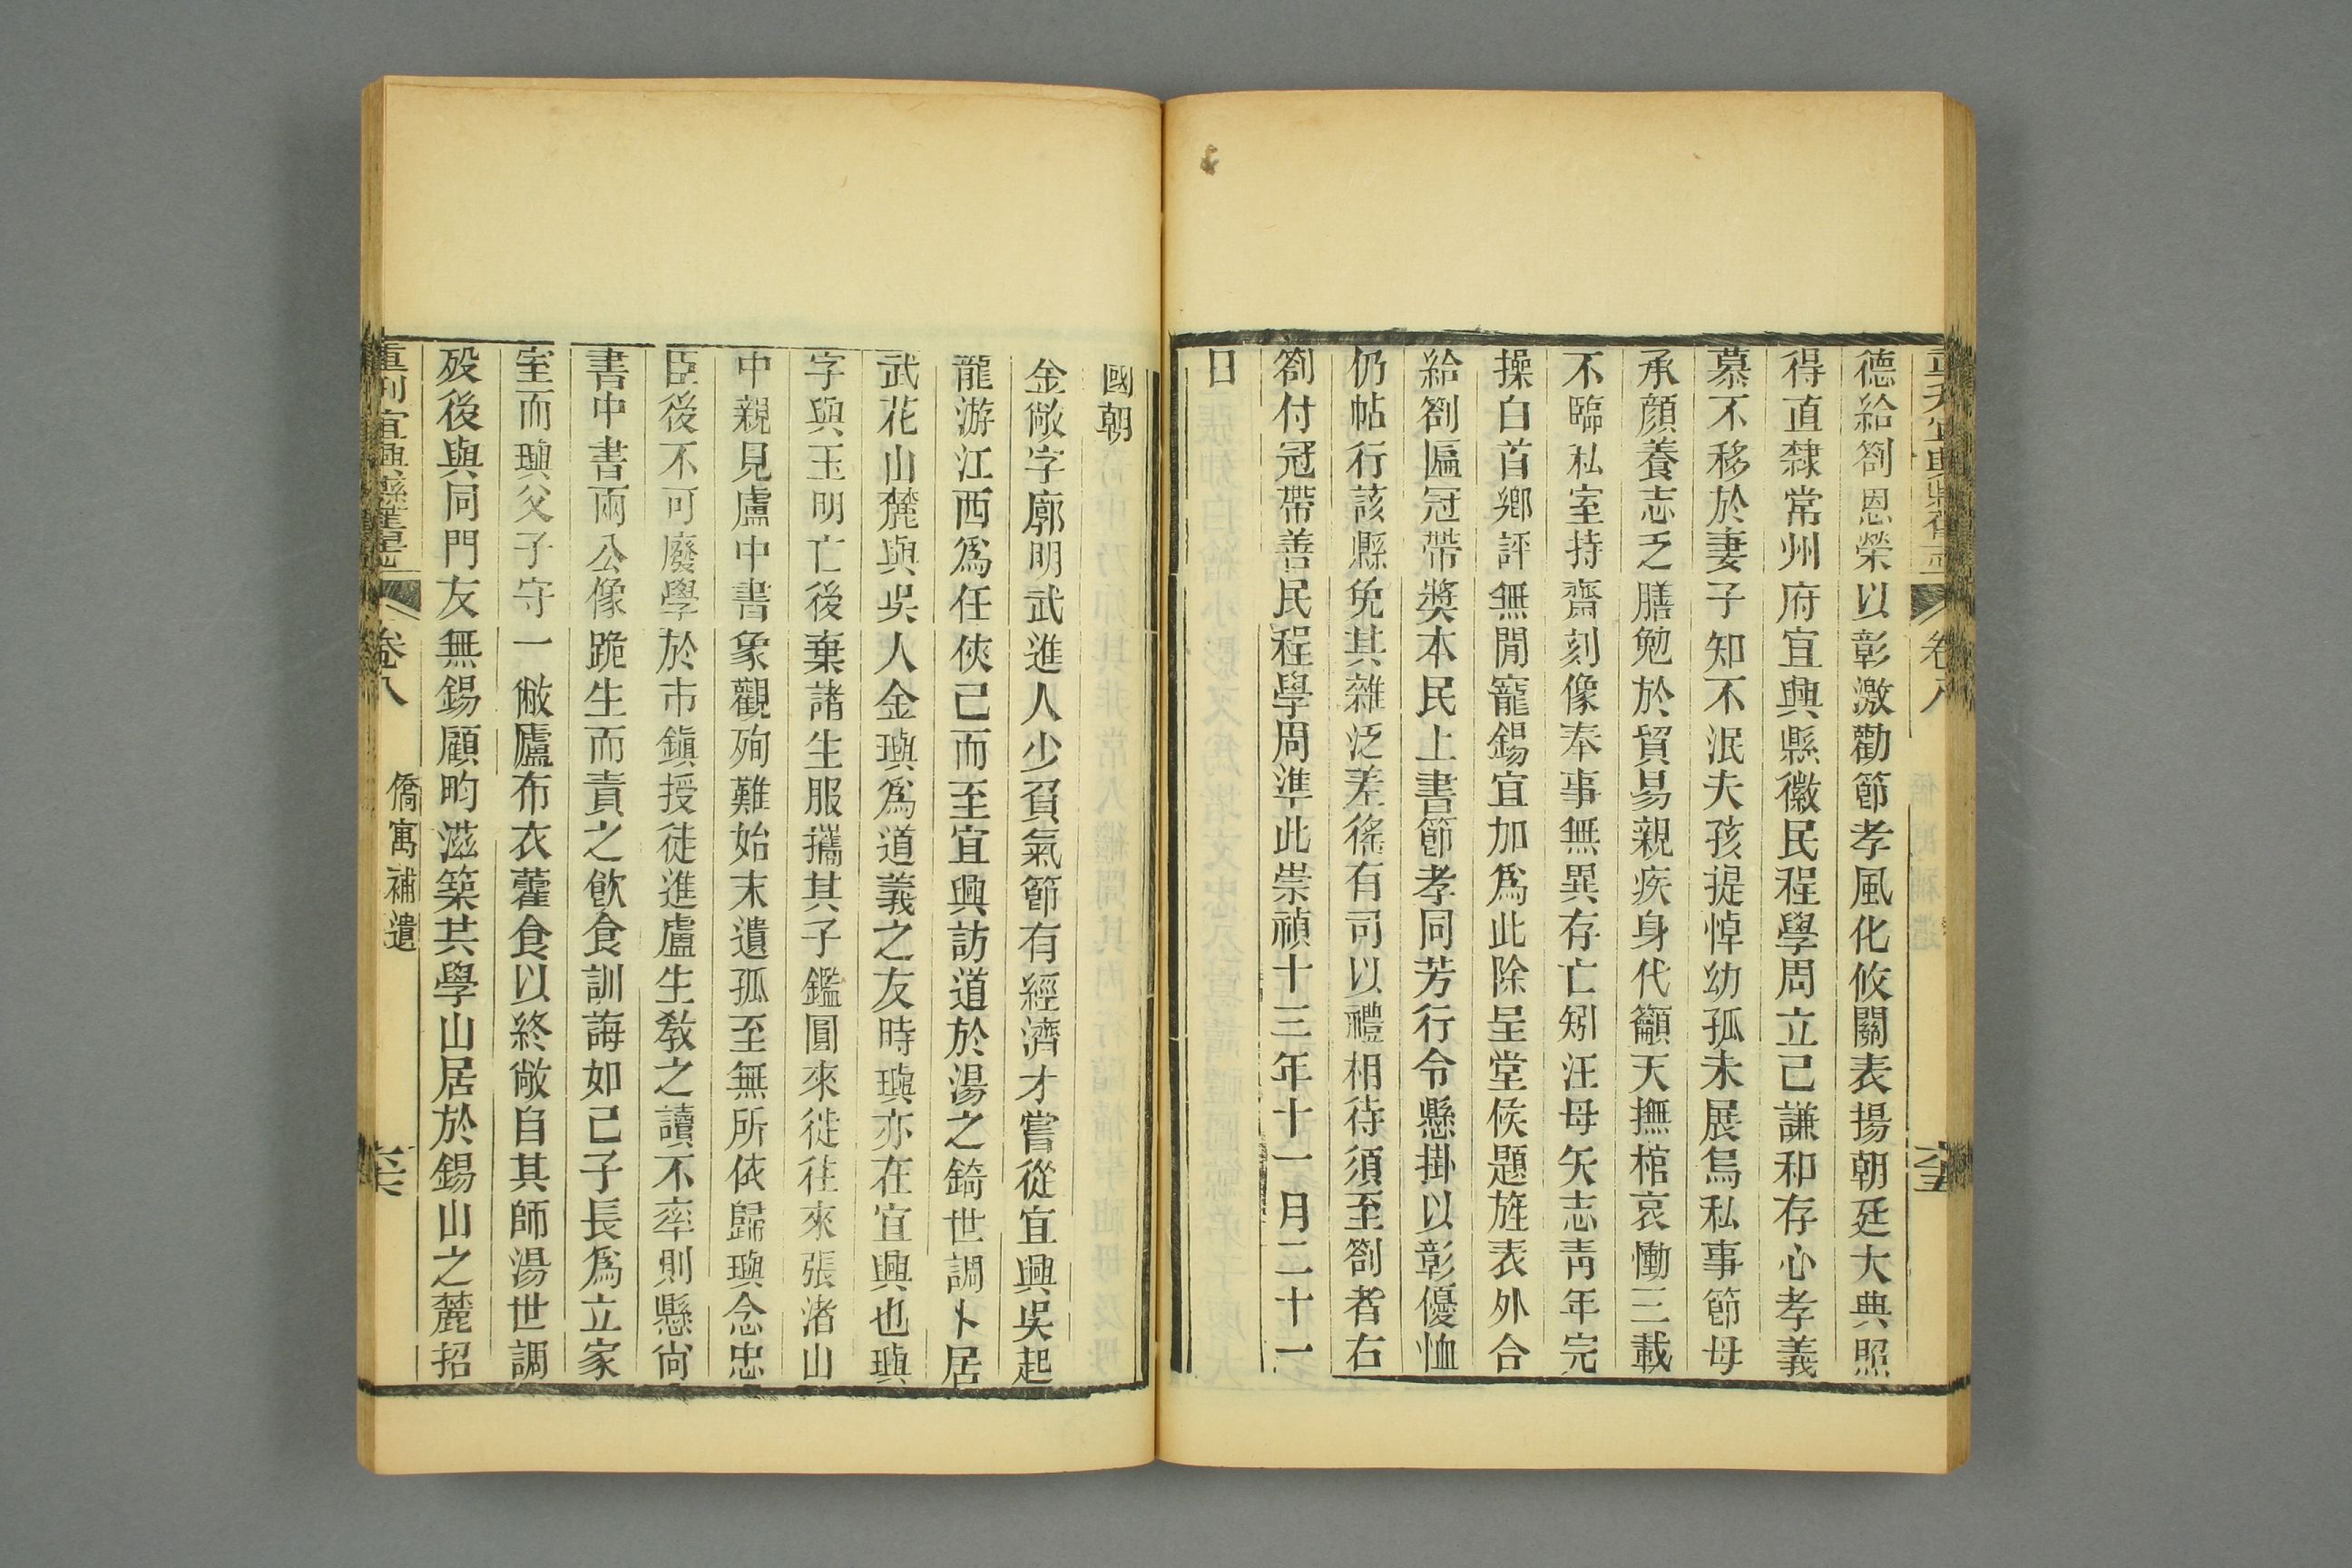 德給劄恩榮以彰激勸節孝風化攸關表揚朝廷大典照
得直隸常州府宜興縣徽民程學周立己謙和存心孝義
慕不移於妻子知不泯夫孩提悼幼孤未展烏私事節母
承顔養志乏膳勉於貿易親疾身代籲天撫棺哀慟三載
不臨私室持齋刻像奉事無異存亡矧汪母矢志靑年完
操白首鄉評無閒寵錫宜加爲此除呈堂候題旌表外合
給劄匾冠帶獎本民上書節孝同芳行令懸掛以彰優恤
仍帖行該縣免其雜泛差徭有司以禮相待須至劄者右
劄付冠帶善民程學周準此崇禎十三年十一月二十一
日
卷八
六十五
國朝
金敞字廓明武進人少負氣節有經濟才嘗從宜興吳起
龍游江西爲任俠已而至宜興訪道於湯之錡世調卜居
武花山麓與吳人金璵爲道義之友時璵亦在宜興也璵
字與玉明亡後棄諸生服攜其子鑑圓來徙往來張渚山
中親見盧中書象觀殉難始末遺孤至無所依歸璵念忠
臣後不可廢學於市鎭授徒進盧生敎之讀不率則懸尙
書中書兩公像跪生而責之飮食訓誨如己子長爲立家
室而璵父子守一敝廬布衣藿食以終敞自其師湯世調
歿後與同門友無錫顧畇滋築共學山居於錫山之麓招
重刊宜興縣舊志
卷八
僑寓補遺
六十六